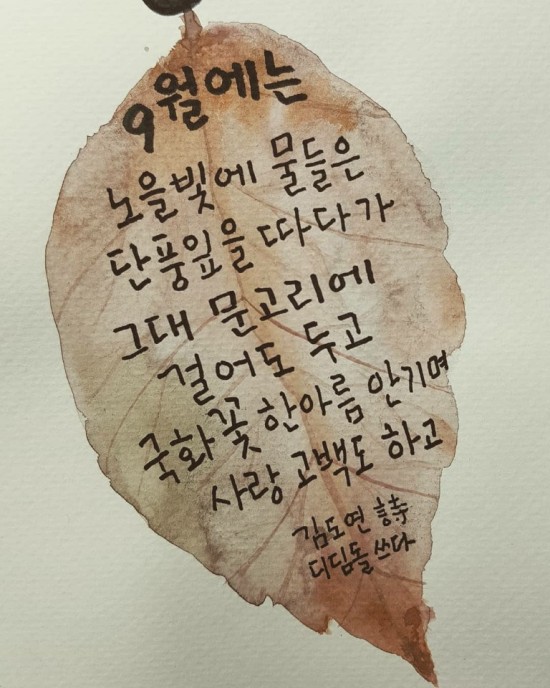 9월에는
노을빛에 물들은
단풍잎을 따다가
그대 문고리에
걸어도 두고
국화꽃 한아름 안기며
사랑 고백도 하고
김도연 詩
디딤돌 쓰다